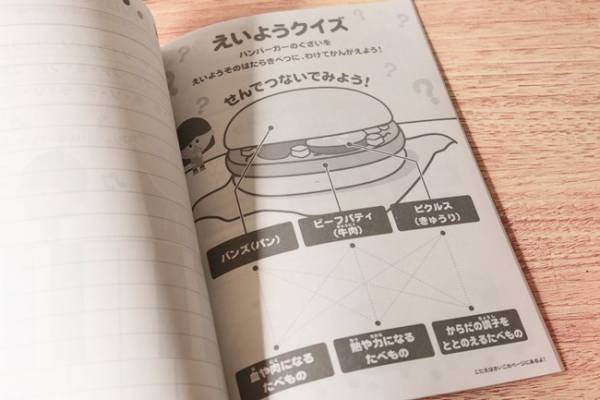 えいようクイズ
ハンバーガーのぐざいを
えいようそのはたらきべつに、わけてかんがえよう!
せんでつないでみよう!
バンズ(パン)
ビーフパティ
(牛肉)
ピクルス
(きゅうり)
血や肉になる
たべもの
熱や力になる
たべもの
からだの調子を
ととのえるたべもの
こたえはさいごのページにあるよ!